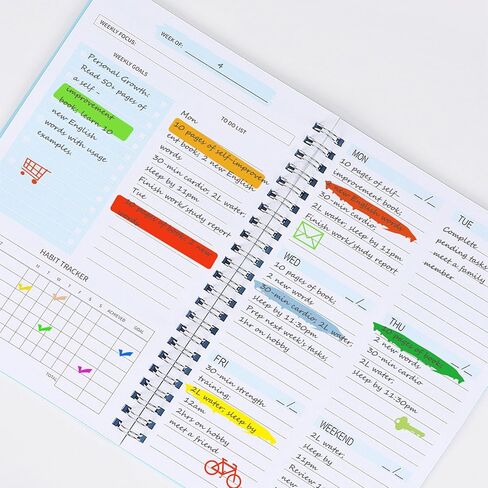 WEEKLY FOCUS:
WEEK OF:
4
WEEKLY GOALS
Personal Growth:
Read 50+ pages of
a self -
improvement
book; learn 10
new English
words with usage
examples.
TO DO LIST
Mon
10 pages of self-improvem
ent book; 2 new English
words
30-min cardio; 2L water;
sleep by 11pm
Finish work/study report
Tue
HABIT TRACKER
M
T
W
T
F
S
S
ACHIEVED
GOAL
TOTAL
MON
__/__
10 pages of self-
improvement book;
2 new English words
30-min cardio;
2L water; sleep by 11pm
Finish work/study report
TUE
Complete
pending tasks
meet a family
member
WED
__/__
10 pages of book;
2 new words
30-min cardio; 2L water;
sleep by 11:30pm
Prep next week's tasks;
1hr on hobby
THU
__/__
10 pages of book;
2 new words
30-min cardio
2L water;
sleep by
11:30pm
FRI
__/__
30-min strength
training;
2L water; sleep by
12am
2hrs on hobby
meet a friend
WEEKEND
__/__
2L water;
sleep by
11pm
Review
new